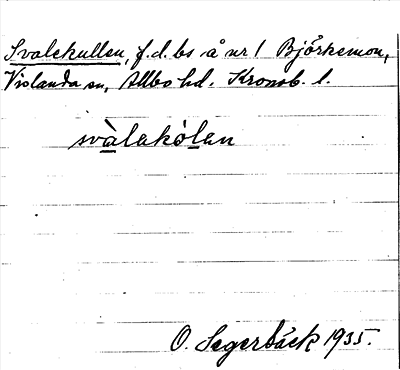 Svalekullen, f.d. bs å nr 1 Björkemon,
Vislanda sn, Allbo hd. Kronob. l.
svàlakólen
O. Segerbäck 1935.